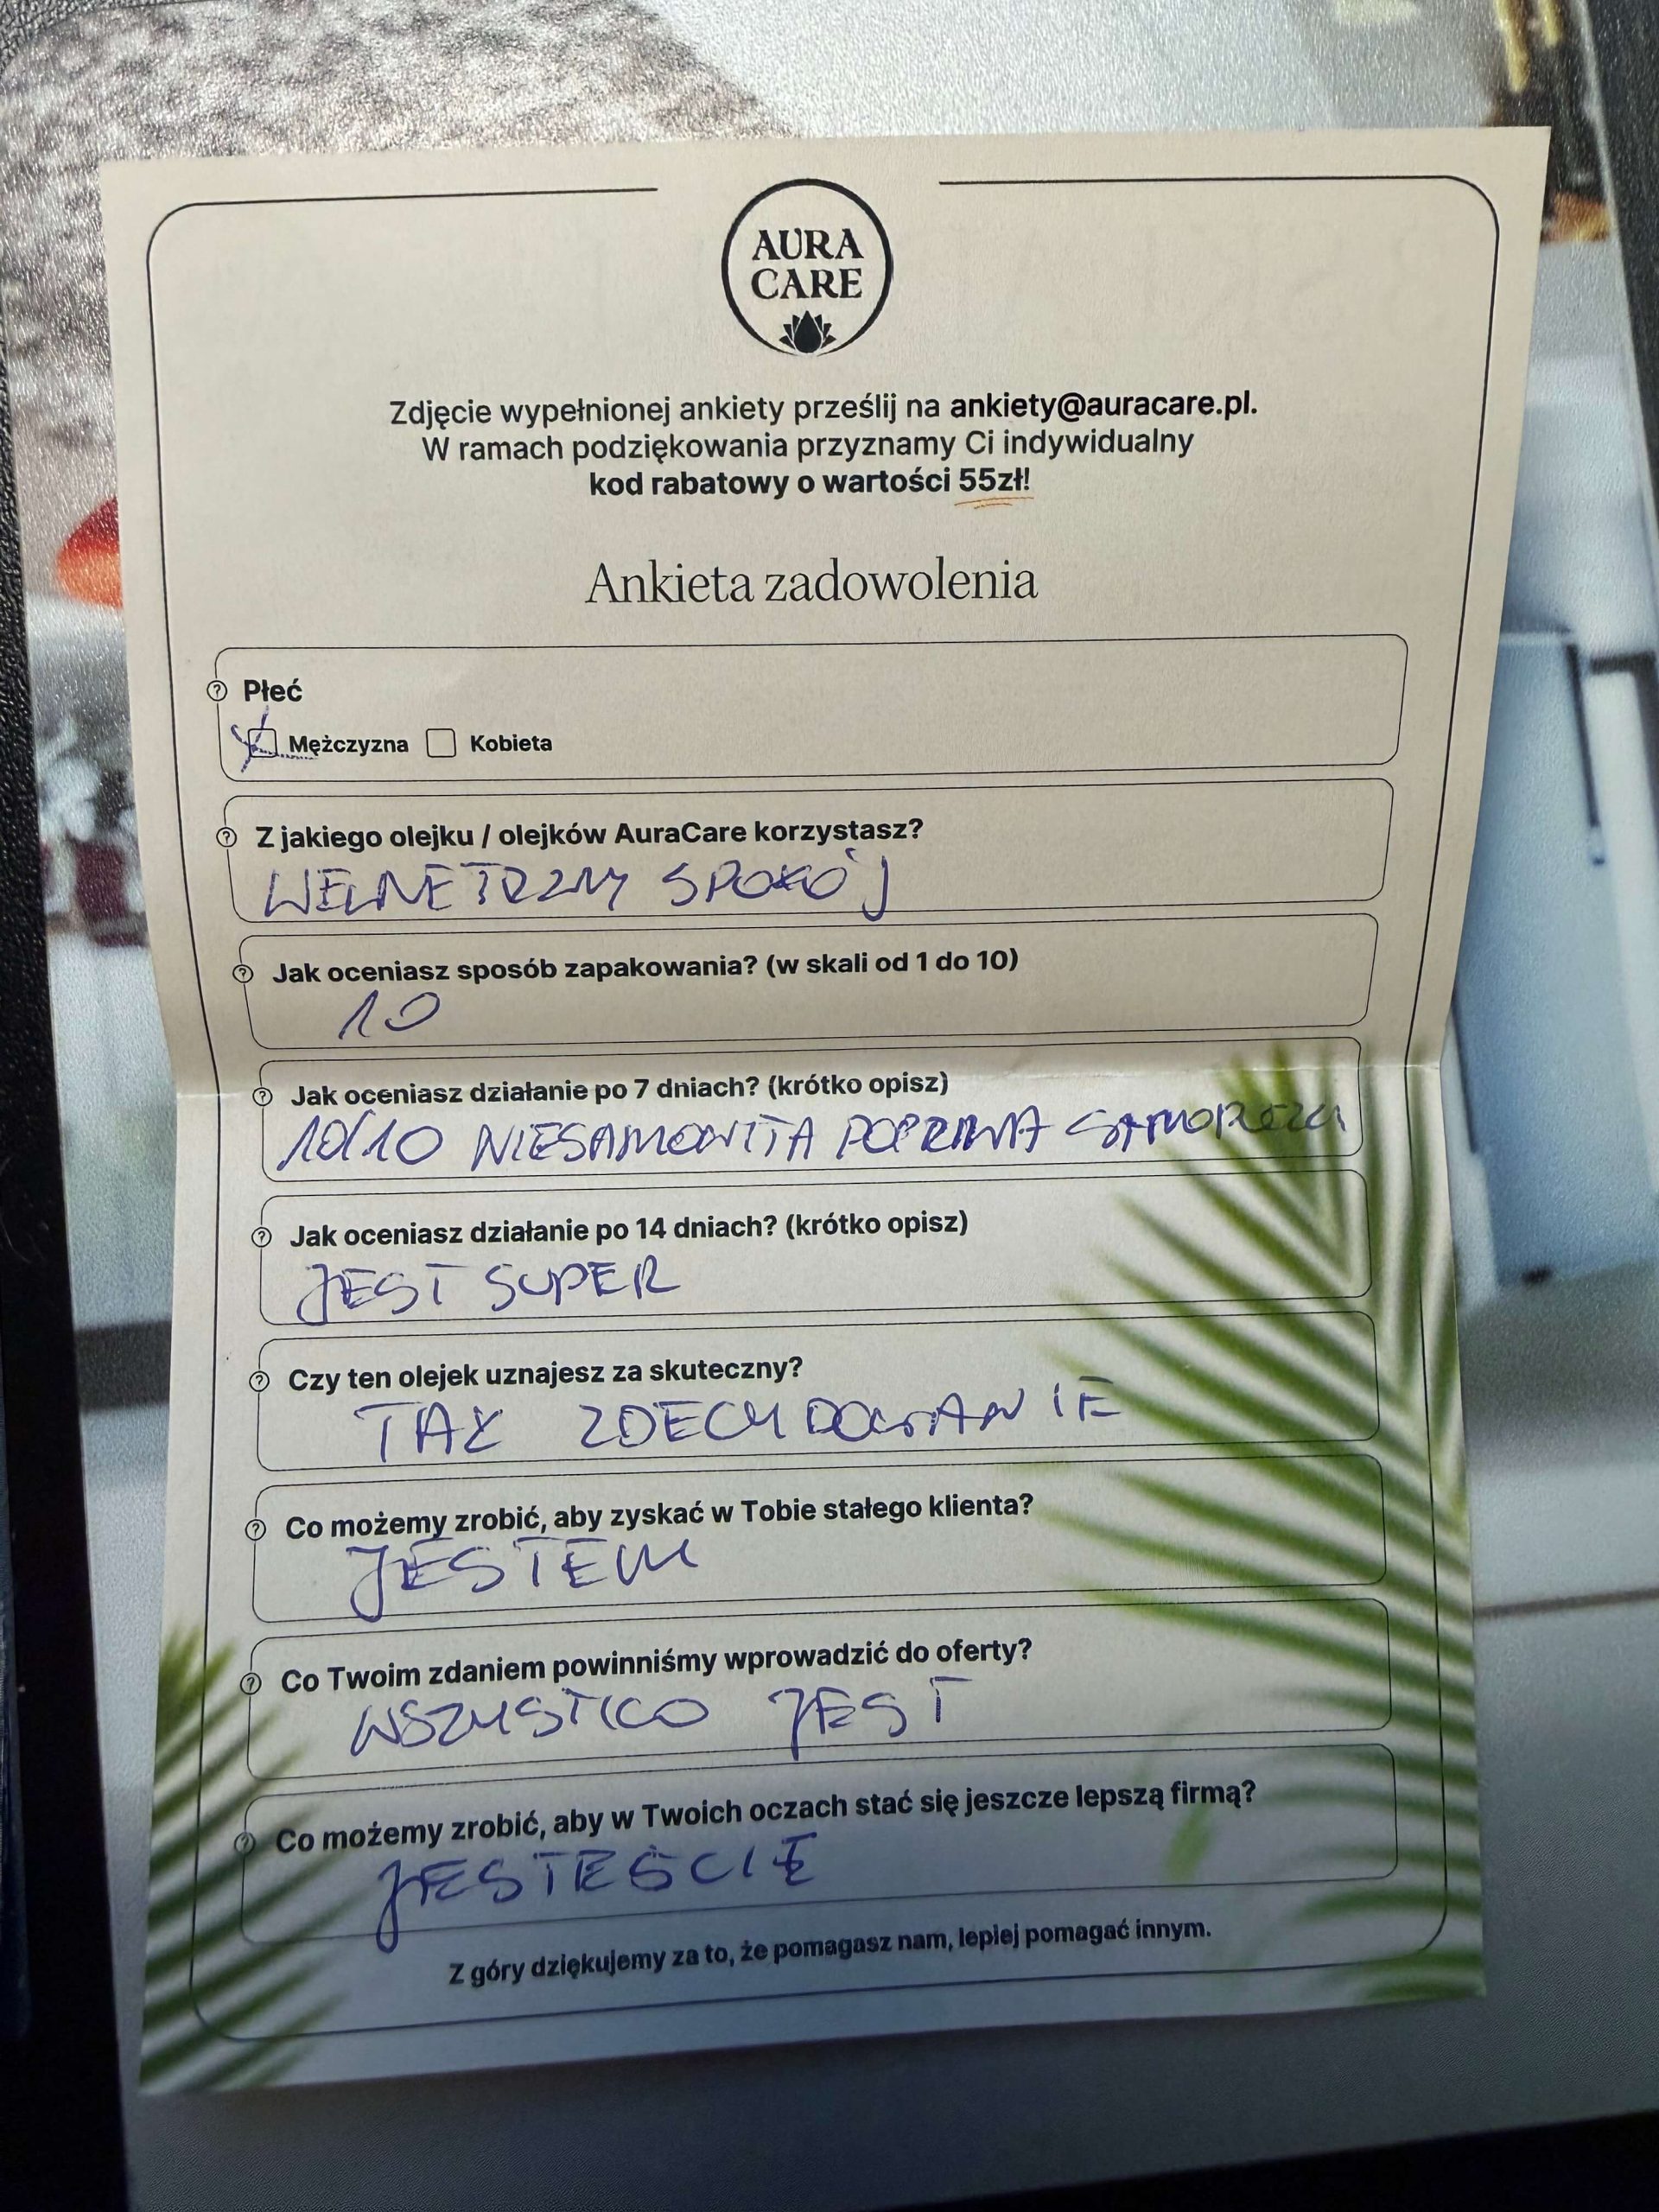 AURA
CARE
Zdjęcie wypełnionej ankiety prześlij na ankiety@auracare.pl.
W ramach podziękowania przyznamy Ci indywidualny
kod rabatowy o wartości 55zł!
Ankieta zadowolenia
Płeć
Mężczyzna Kobieta
Z jakiego olejku / olejków AuraCare korzystasz?
WEWNĘTRZNY SPOKÓJ
Jak oceniasz sposób zapakowania? (w skali od 1 do 10)
10
Jak oceniasz działanie po 7 dniach? (krótko opisz)
10/10 NIESAMOWITA POPRAWA
Jak oceniasz działanie po 14 dniach? (krótko opisz)
JEST SUPER
Czy ten olejek uznajesz za skuteczny?
TAK ZDECYDOWANIE
Co możemy zrobić, aby zyskać w Tobie stałego klienta?
JESTEM
Co Twoim zdaniem powinniśmy wprowadzić do oferty?
WSZYSTKO JEST
Co możemy zrobić, aby w Twoich oczach stać się jeszcze lepszą firmą?
JESTEŚCIE
Z góry dziękujemy za to, że pomagasz nam, lepiej pomagać innym.